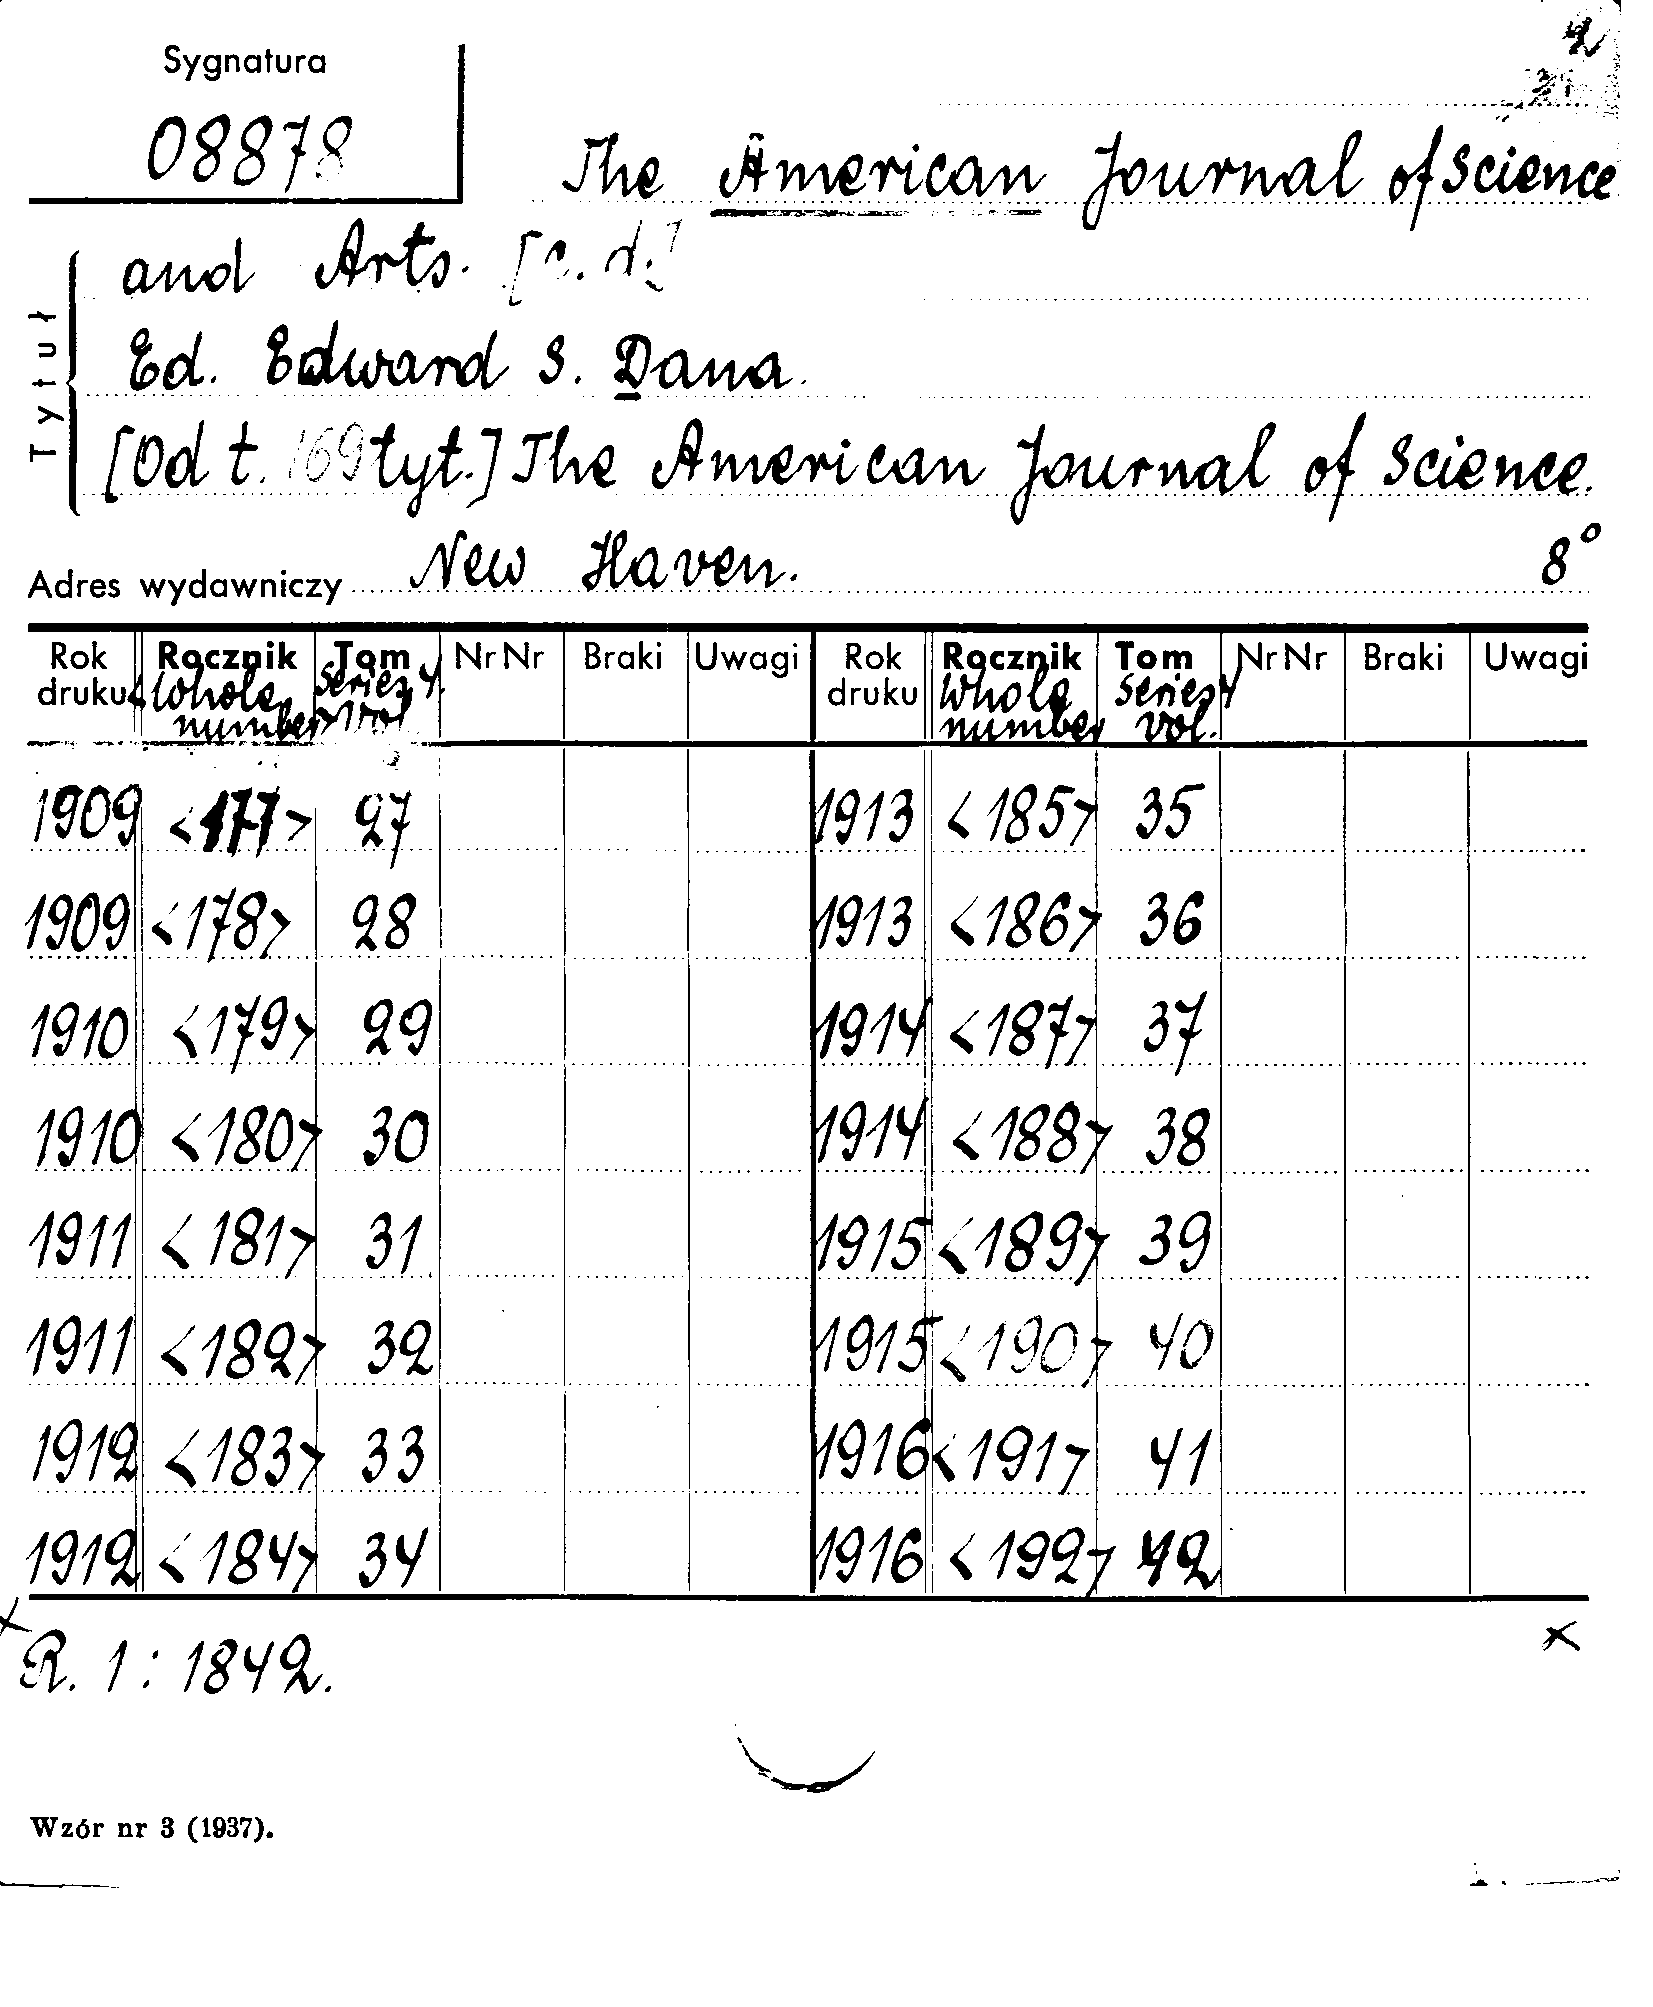 2
Sygnatura
08878
The American Journal of Science
and Arts. [c. d.]
Tytuł
Ed. Edward S. Dana.
[Od t. 169 tyt.] The American Journal of Science.
Adres wydawniczy New Haven. 8°
Rok druku Rocznik Whole number Tom Series 4. vol. Nr Nr Braki Uwagi Rok druku Rocznik Whole number Tom Series 4 vol. Nr Nr Braki Uwagi
1909 <177> 27 1913 <185> 35
1909 <178> 28 1913 <186> 36
1910 <179> 29 1914 <187> 37
1910 <180> 30 1914 <188> 38
1911 <181> 31 1915 <189> 39
1911 <182> 32 1915 <190> 40
1912 <183> 33 1916 <191> 41
1912 <184> 34 1916 <192> 42
x x
R. 1 : 1842.
Wzór nr 3 (1937).